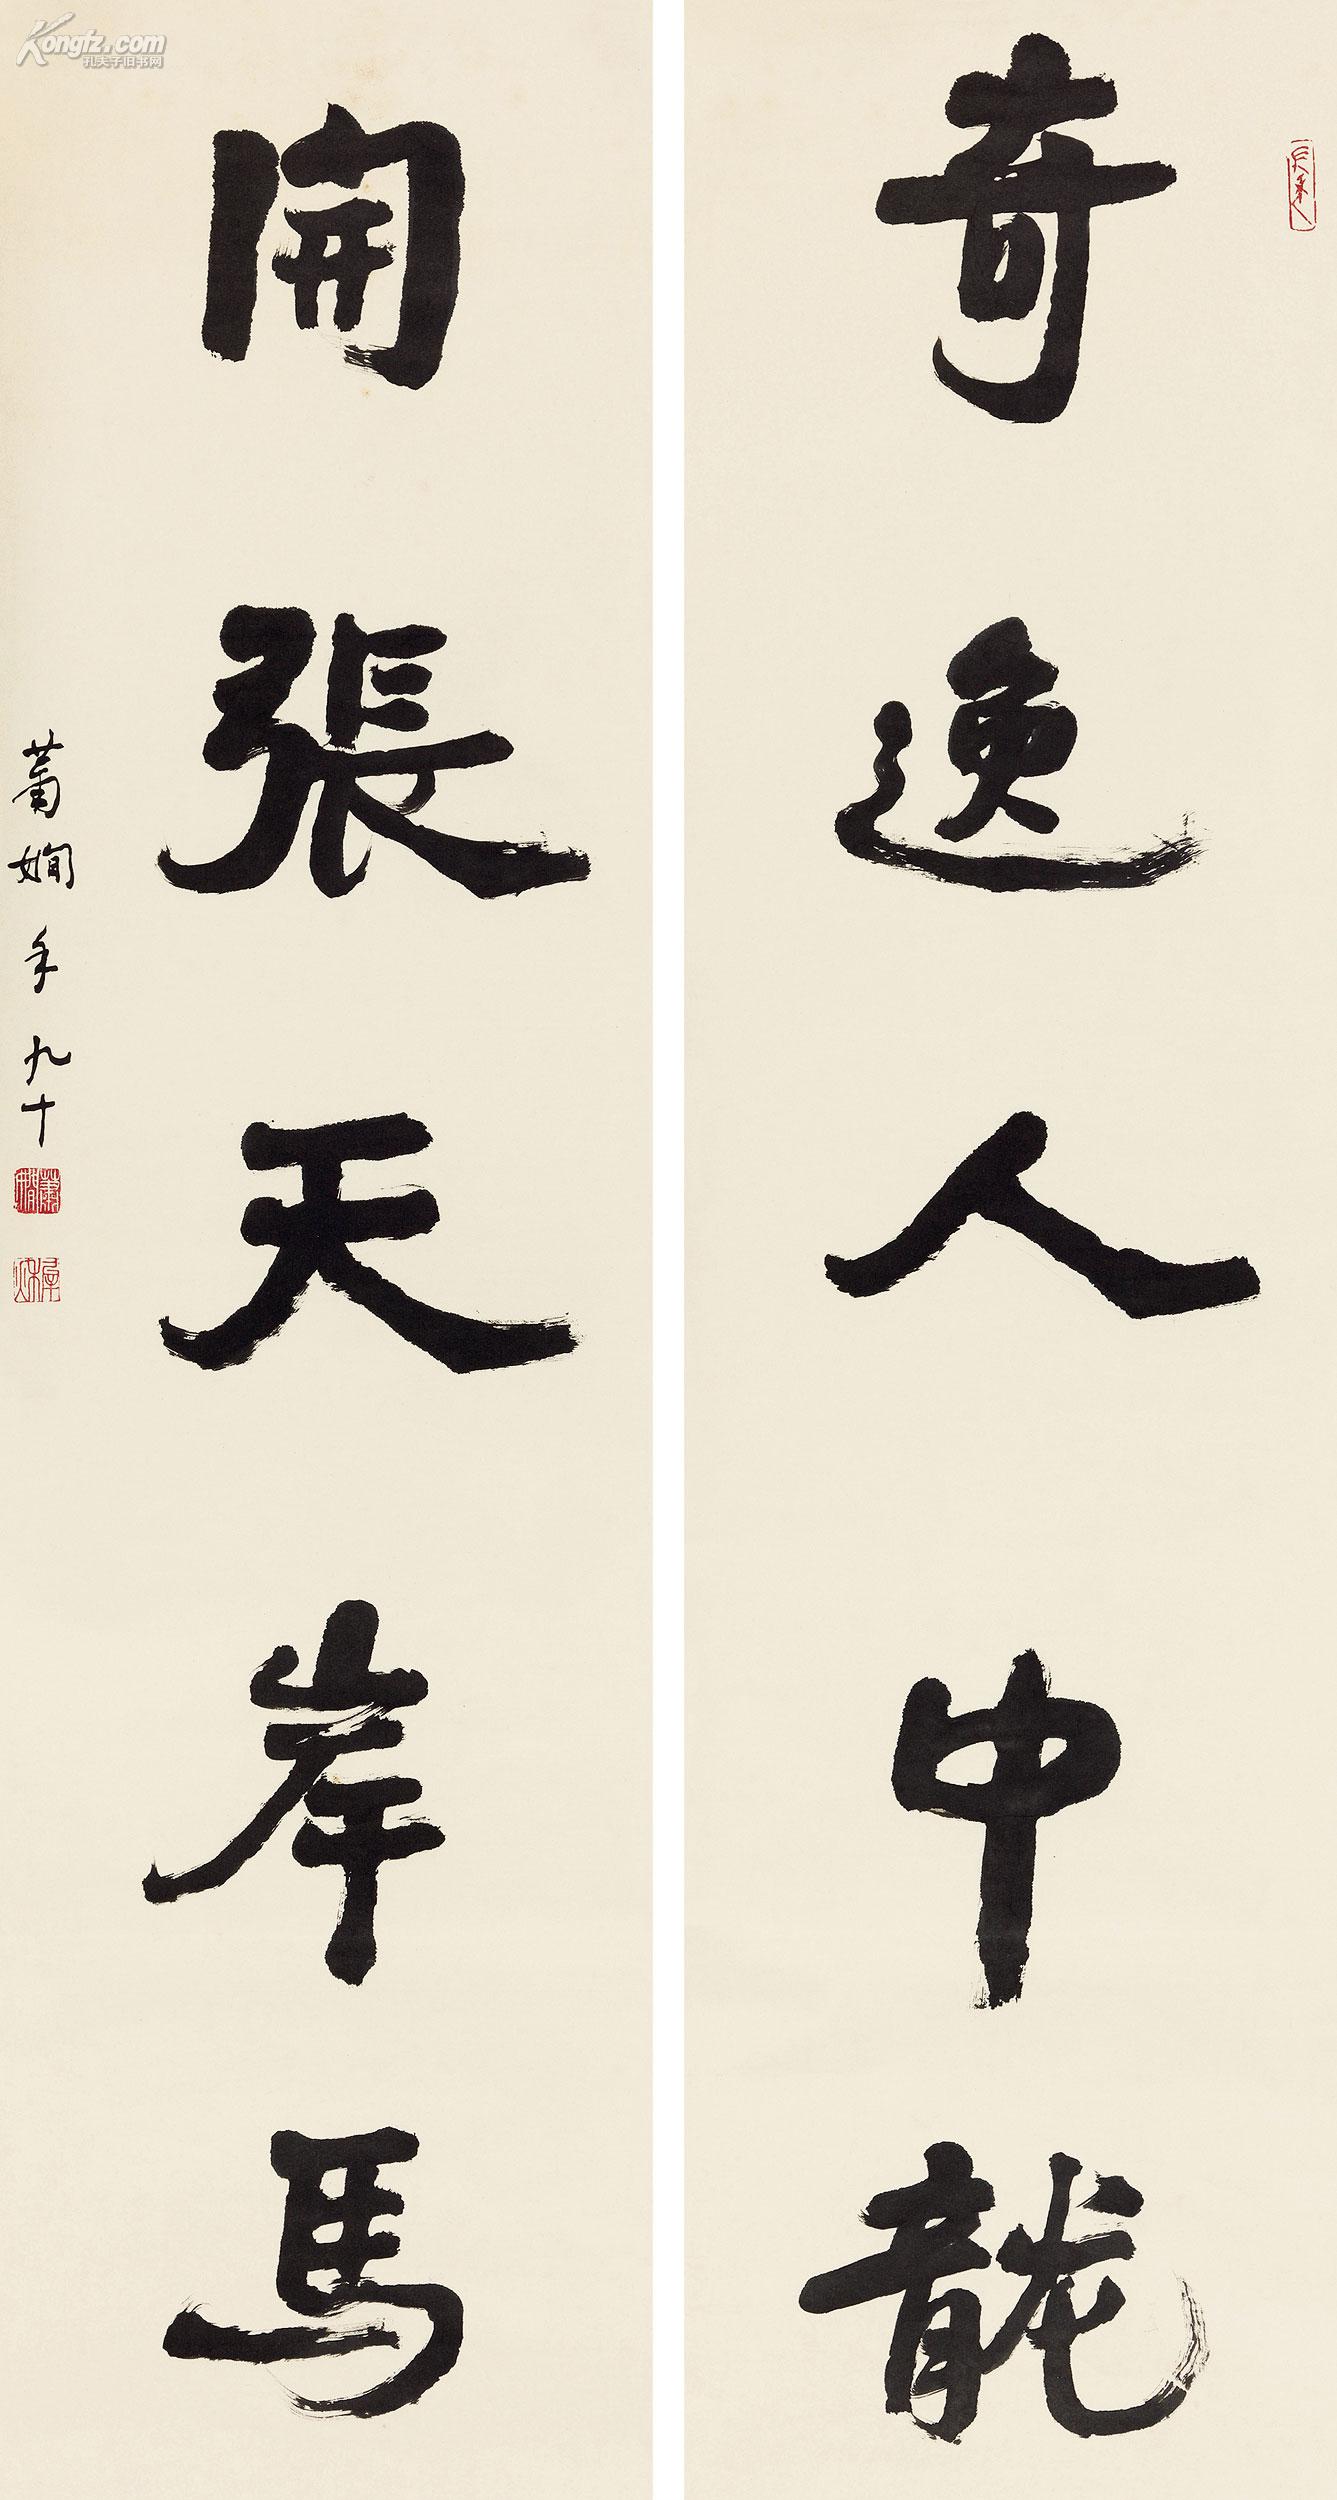 奇逸人中龍
開張天岸馬
蕭嫻年九十
Kongfz.com
孔夫子旧书网